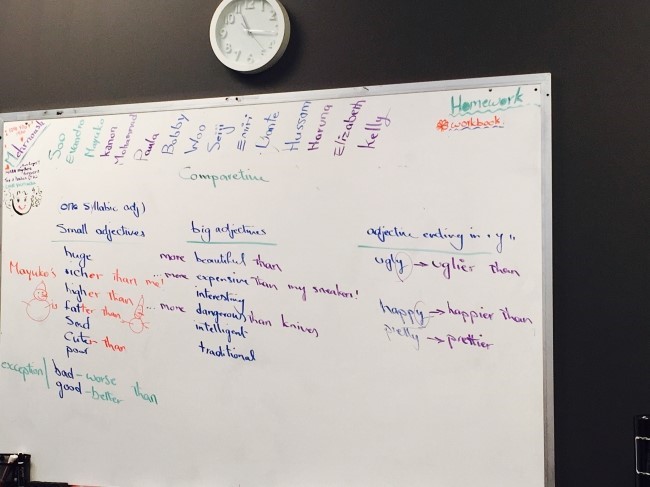 Homework
workbook
Soo
Mayuko
Kanon
Mohammed
Paula
Bobby
Woo
Seiji
Emiri
Hussam
Haruna
Elizabeth
Kelly
Comparetive
one sillabic adj)
Small adjectives
big adjectives
adjective ending in "y"
huge
more beautiful than
ugly → uglier than
Mayuko's richer than me!
...more expensive than my sneakers!
higher than
interesting
fatter than
... more dangerous than knives
happy → happier than
Sad
intelligent
pretty → prettier
Cuter than
traditional
poor
exception/ bad - worse than
good - better